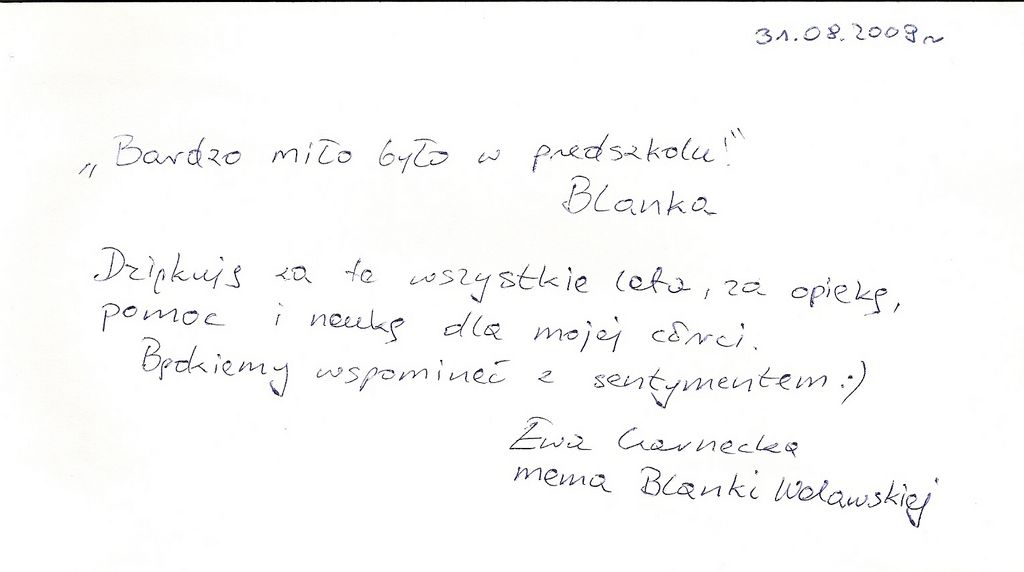 31.08.2009r
„Bardzo miło było w przedszkolu!"
Blanka
Dziękuję za te wszystkie lata, za opiekę,
pomoc i naukę dla mojej córci.
Będziemy wspominać z sentymentem :)
Ewa Czarnecka
mama Blanki Wolawskiej